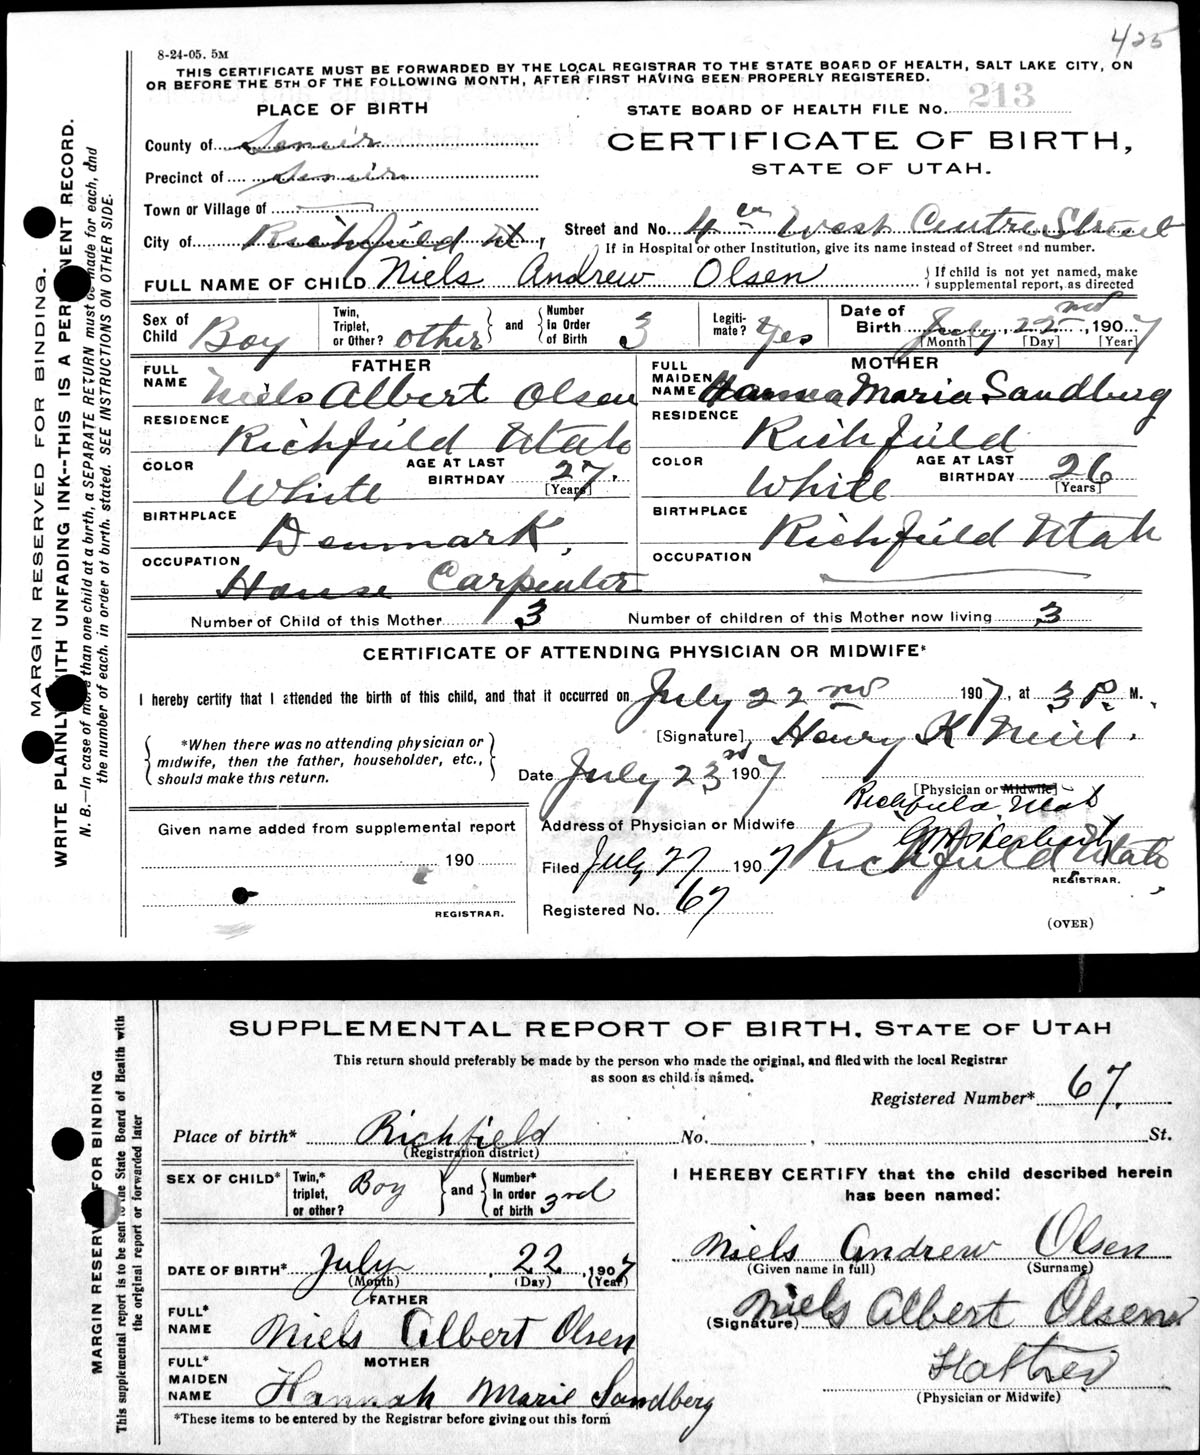 425
8-24-05. 5M
THIS CERTIFICATE MUST BE FORWARDED BY THE LOCAL REGISTRAR TO THE STATE BOARD OF HEALTH, SALT LAKE CITY, ON
OR BEFORE THE 5TH OF THE FOLLOWING MONTH, AFTER FIRST HAVING BEEN PROPERLY REGISTERED.
PLACE OF BIRTH
STATE BOARD OF HEALTH FILE No. 213
County of Sevier
CERTIFICATE OF BIRTH,
Precinct of Sevier
STATE OF UTAH.
Town or Village of
City of Richfield Ut, Street and No. 4th West Centre Street
If in Hospital or other Institution, give its name instead of Street and number.
FULL NAME OF CHILD Niels Andrew Olsen
If child is not yet named, make
supplemental report, as directed
Sex of Child Boy
Twin, Triplet, or Other? other
and
Number In Order of Birth 3
Legiti- mate? Yes
Date of Birth July, 22nd, 1907
[Month] [Day] [Year]
FATHER
FULL NAME Niels Albert Olsen
MOTHER
FULL MAIDEN NAME Hanna Maria Sandberg
RESIDENCE Richfield Utah
RESIDENCE Richfield
COLOR White AGE AT LAST BIRTHDAY 27. [Years]
COLOR White AGE AT LAST BIRTHDAY 26 [Years]
BIRTHPLACE Denmark,
BIRTHPLACE Richfield Utah
OCCUPATION House Carpenter
OCCUPATION
Number of Child of this Mother 3 Number of children of this Mother now living 3
CERTIFICATE OF ATTENDING PHYSICIAN OR MIDWIFE*
I hereby certify that I attended the birth of this child, and that it occurred on July 22nd 1907, at 3 P. M.
*When there was no attending physician or
midwife, then the father, householder, etc.,
should make this return.
[Signature], Henry K Neill.
Date July 23rd 1907
[Physician or Midwife]
Richfield Utah
Given name added from supplemental report
Address of Physician or Midwife
190
Filed July 27 1907 Richfield Utah,
REGISTRAR.
REGISTRAR.
Registered No. 67
(OVER)
MARGIN RESERVED FOR BINDING.
WRITE PLAINLY WITH UNFADING INK--THIS IS A PERMANENT RECORD.
N. B.—In case of more than one child at a birth, a SEPARATE RETURN must be made for each, and
the number of each. in order of birth. stated. SEE INSTRUCTIONS ON OTHER SIDE.
SUPPLEMENTAL REPORT OF BIRTH, STATE OF UTAH
This return should preferably be made by the person who made the original, and filed with the local Registrar
as soon as child is named.
Registered Number* 67.
Place of birth* Richfield No. , St.
(Registration district)
SEX OF CHILD*
Twin,* triplet, or other? Boy
and
Number* In order of birth 3rd
I HEREBY CERTIFY that the child described herein
has been named:
Niels Andrew Olsen
(Given name in full) (Surname)
DATE OF BIRTH* July, 22, 1907
(Month) (Day) (Year)
FATHER
FULL* NAME Niels Albert Olsen
(Signature) Niels Albert Olsen
MOTHER
FULL* MAIDEN NAME Hannah Marie Sandberg
Father
(Physician or Midwife)
*These items to be entered by the Registrar before giving out this form
MARGIN RESERVED FOR BINDING
This supplemental report is to be sent to the State Board of Health with
the original report or forwarded later